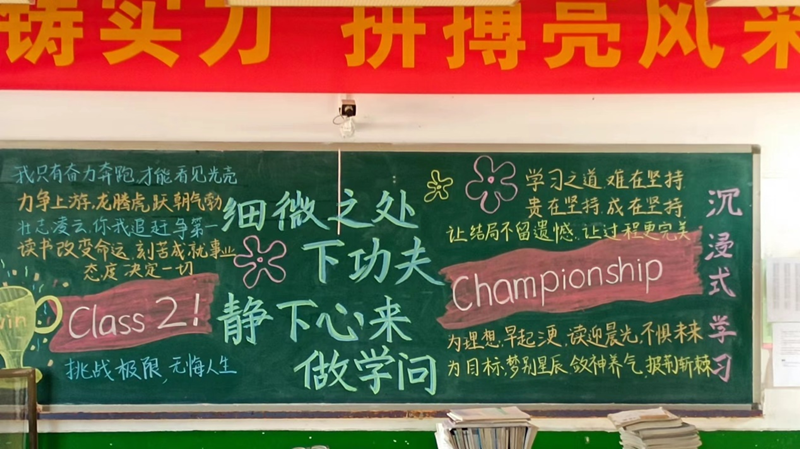 铸实力 拼搏亮风采
我只有奋力奔跑,才能看见光亮
力争上游,龙腾虎跃,朝气勃
壮志凌云,你我追赶,争第一
读书改变命运,刻苦成就事业
态度决定一切
win
Class 2!
挑战极限,无悔人生
细微之处
下功夫
静下心来
做学问
学习之道,难在坚持
贵在坚持,成在坚持
让结局不留遗憾,让过程更完美
Championship
为理想,早起
读迎晨光,不惧未来
为目标,梦别星辰,敛神养气,披荆斩棘
沉浸式学习